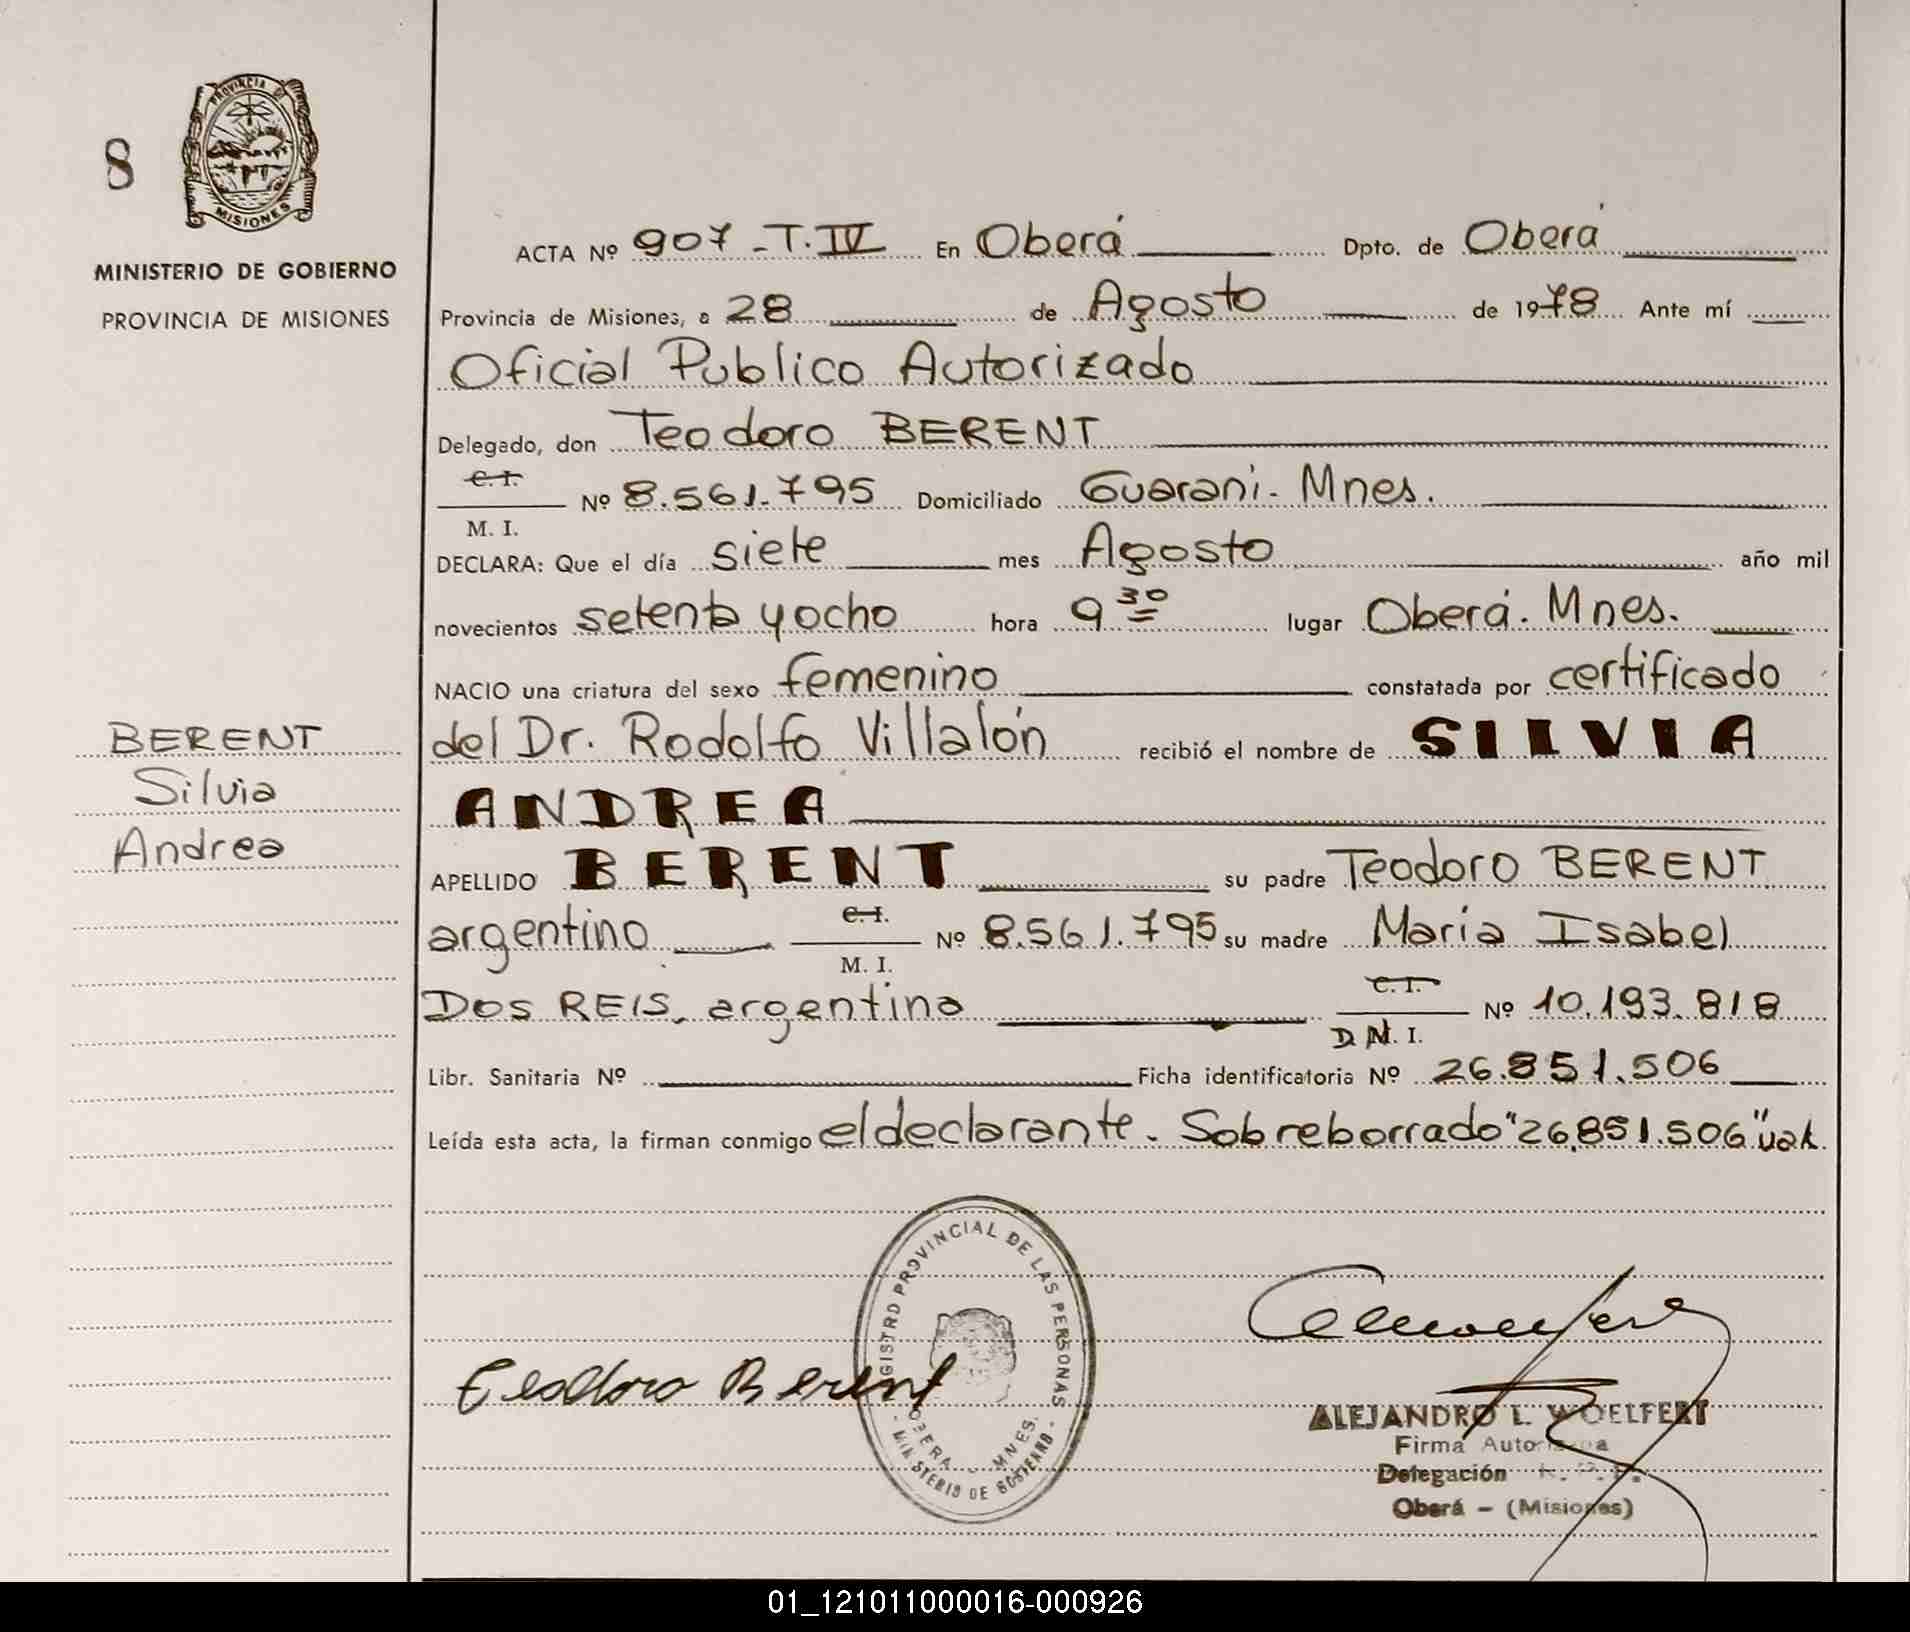 8
PROVINCIA DE
MISIONES
MINISTERIO DE GOBIERNO
PROVINCIA DE MISIONES
BERENT
Silvia
Andrea
ACTA Nº 907 - T. IV En Oberá Dpto. de Oberá
Provincia de Misiones, a 28 de Agosto de 1978 Ante mí
Oficial Publico Autorizado
Delegado, don Teodoro BERENT
C. I.
Nº 8.561.795 Domiciliado Guarani. Mnes.
M. I.
DECLARA: Que el día siete mes Agosto año mil
novecientos setenta y ocho hora 9 30 lugar Oberá. Mnes.
NACIO una criatura del sexo femenino constatada por certificado
del Dr. Rodolfo Villalón recibió el nombre de SILVIA
ANDREA
APELLIDO BERENT su padre Teodoro BERENT
C. I.
argentino Nº 8.561.795 su madre Maria Isabel
M. I.
C. I.
DOS REIS, argentina Nº 10.193.818
D. N. I.
Libr. Sanitaria Nº Ficha identificatoria Nº 26.851.506
Leída esta acta, la firman conmigo el declarante. Sobreborrado "26.851.506"
REGISTRO PROVINCIAL DE LAS PERSONAS
OBERA - MNES.
- MINISTERIO DE GOBIERNO -
Teodoro Berent
ALEJANDRO L. WOELFERT
Firma Autorizada
Delegación
Oberá - (Misiones)
01_121011000016-000926